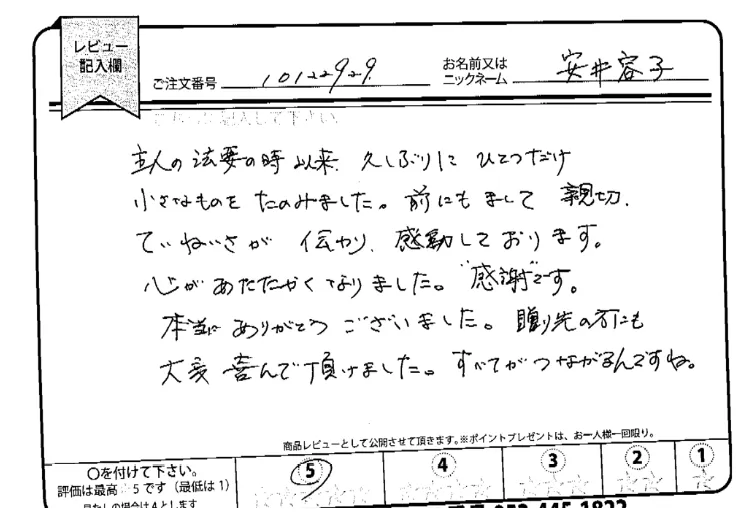 レビュー
記入欄
ご注文番号 10122929
お名前又は
ニックネーム 安井容子
主人の法要の時以来、久しぶりに ひとつだけ
小さなものをたのみました。前にもまして親切、
ていねいさが 伝わり、感動しております。
心があたたかくなりました。"感謝"です。
本当に ありがとう ございました。贈り先の方にも
大変 喜んで頂けました。すべてがつながるんですね。
商品レビューとして公開させて頂きます。※ポイントプレゼントは、お一人様一回限り。
○を付けて下さい。
評価は最高 5 です（最低は 1）
5 4 3 2 1